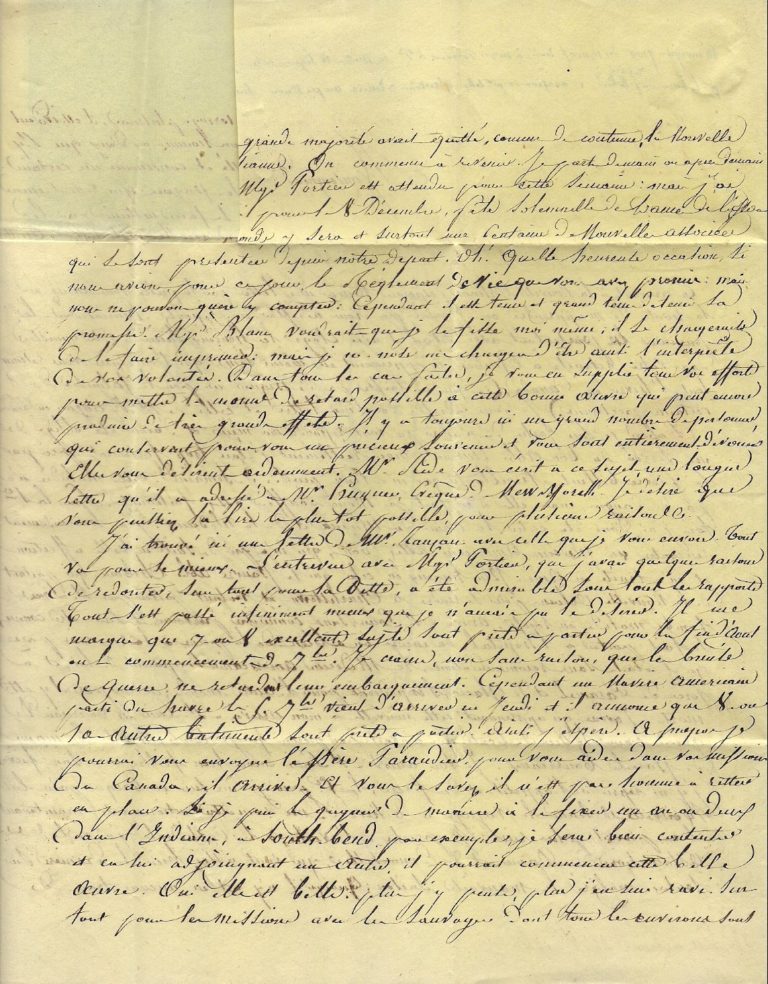 grande majorité avait quitté, comme de coutume, la Nouvelle
On commence a revenir. Je part demain ou apres demain
Mgr Fortier est attendu pour cette semaine: mais j'ai
pour le 8 Décembre, fête solemnelle de
monde y sera et surtout une Centaine de Nouvelle associée
qui se sont presentée depuis notre depart. Oh! Quelle heureuse occasion, si
nous avions pour ce jour, le Règlement de Vie que vous avez promis: mais
nous ne pouvons guère y compter. Cependant il est tems et grand tems de tenir la
promesse. Mgr Blanc voudrait que je le fisse moi même, il se chargerait
de le faire imprimer: mais je me chargerai d'être ainsi l'interprète
de vos volontés. Dans tous les cas faite, je vous en supplie tous vos effort
pour mettre le moins de retard possible à cette bonne œuvre qui peut encore
produire de très grands effets. Il y a toujours ici un grand nombre de personnes
qui conservent pour vous un precieux souvenir et vous sont entièrement dévoués
Elle vous désirent ardemment. Mr vous écrit a ce sujet, une longue
lettre qu'il a adressé à Mr evêque New York. Je désire que
vous puissiez la lire le plus tot possible, pour plusieurs raisons &c.
J'ai trouvé ici une lettre de Mr avec celle que je vous envoie. Tout
va pour le mieux. L'entrevue avec Mgr Fortier, que j'avais quelque raison
de redouter, surtout pour la Dette, a été admirable sous tout les rapports
Tout s'est passé infiniment mieux que je n'aurais pu le désirer. Il me
marque que 7 ou 8 excellents sujets sont prets a partir pour la fin d'Aout
ou commencement de 7bre. Je crains, non sans raison, que les bruits
de guerre ne retardent leur embarquement. Cependant un Navire Americain
parti du havre le 5. 7bre vient d'arriver ici Jeudi et il annonce que 8 ou
10 autres batiments sont prets a partir. Ainsi j'espère. A propos je
pourrai vous envoyer le Père pour vous aider dans vos missions
du Canada, il arrive. Et vous le savez, il n'est pas homme à rester
en place. Si je puis le gagner de manière à le fixer un an ou deux
dans l'Indiana, à South bend, par exemple, je serai bien content
et en lui adjoignant un autre, il pourrait commencer cette belle
œuvre. Oui elle est belle: plus j'y pense, plus j'en suis ravi. Sur
tout pour les missions avec les sauvages dont tous les environs sont